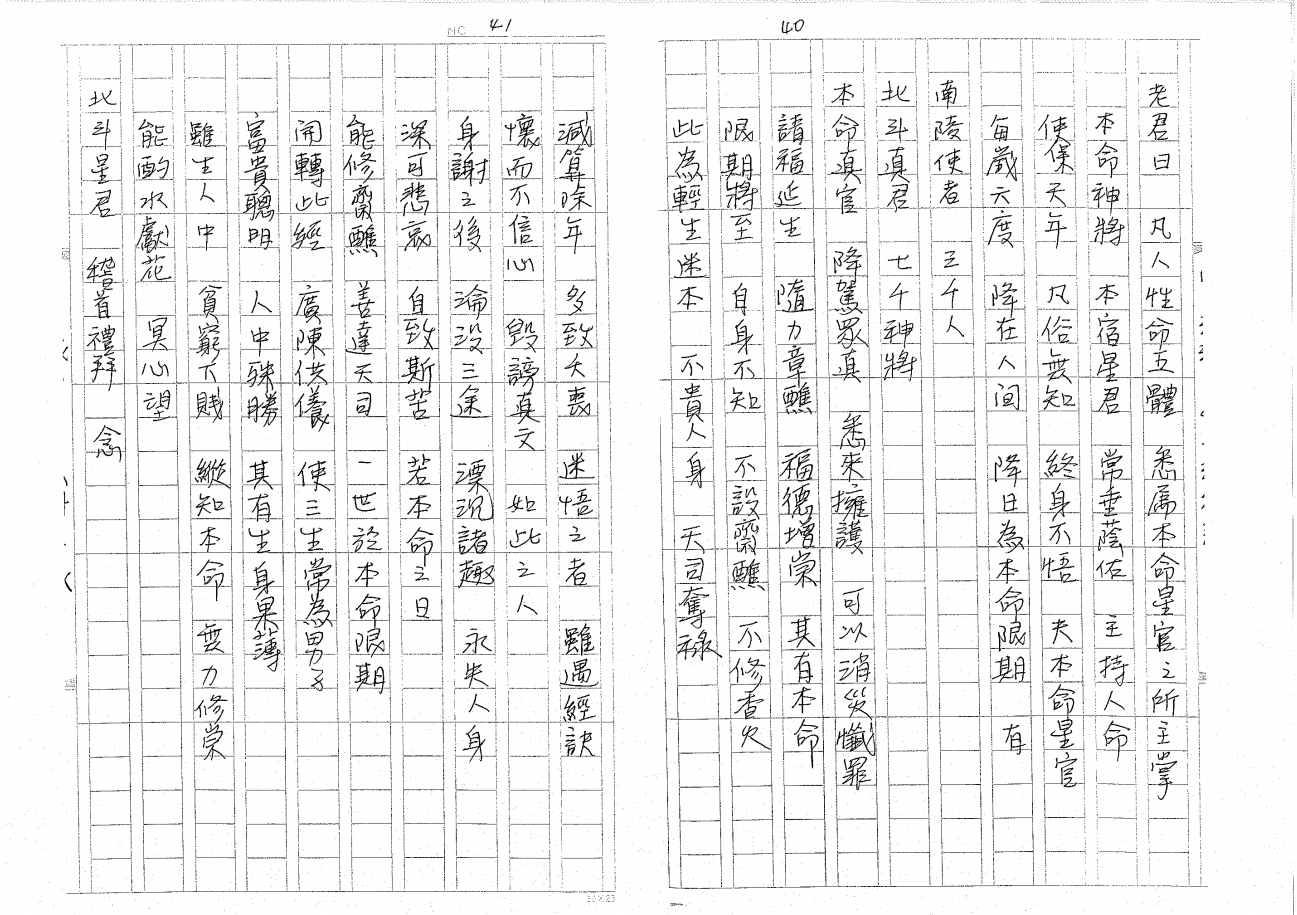 40
老君曰 凡人性命五體 悉屬本命星官之所主掌
本命神將 本宿星君 常垂蔭佑 主持人命
使保天年 凡俗無知 終身不悟 夫本命星官
每歲六度 降在人间 降日為本命限期 有
南陵使者 三千人
北斗真君 七千神將
本命真官 降駕眾真 悉來擁護 可以消災懺罪
請福延生 隨力章醮 福德增崇 其有本命
限期將至 自身不知 不設齋醮 不修香火
此為輕生迷本 不貴人身 天司奪祿
NO. 41
減算除年 多致夭喪 迷悟之者 雖遇經訣
懷而不信心 毀謗真文 如此之人
身謝之後 淪沒三塗 漂沉諸趣 永失人身
深可悲哀 自致斯苦 若本命之日
能修齋醮 善達天司 一世於本命限期
開轉此經 廣陳供儀 使三生常為男子
富貴聰明 人中殊勝 其有生身果薄
雖生人中 貧窮下賤 縱知本命 無力修崇
能酌水獻花 冥心望
北斗星君 稽首禮拜 念